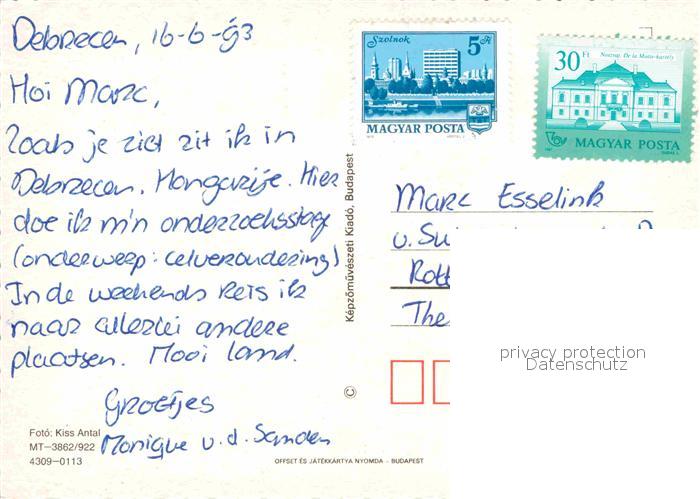 Debrecen, 16-6-93
Hoi Marc,
Zoals je ziet zit ik in
Debrecen, Hongarije. Hier
doe ik m'n onderzoeksstage
(onderwerp: celveroudering)
In de weekends reis ik
naar allerlei andere
plaatsen. Mooi land.
Groetjes
Monique v.d. Sanden
Fotó: Kiss Antal
MT—3862/922
4309—0113
Képzőművészeti Kiadó, Budapest
©
OFFSET ÉS JÁTÉKKÁRTYA NYOMDA - BUDAPEST
Szolnok
5 Ft
MAGYAR POSTA
30 Ft
Noszvaj, De la Motte-kastély
MAGYAR POSTA
Marc Esselink
v. Su
Rott
The
privacy protection
Datenschutz